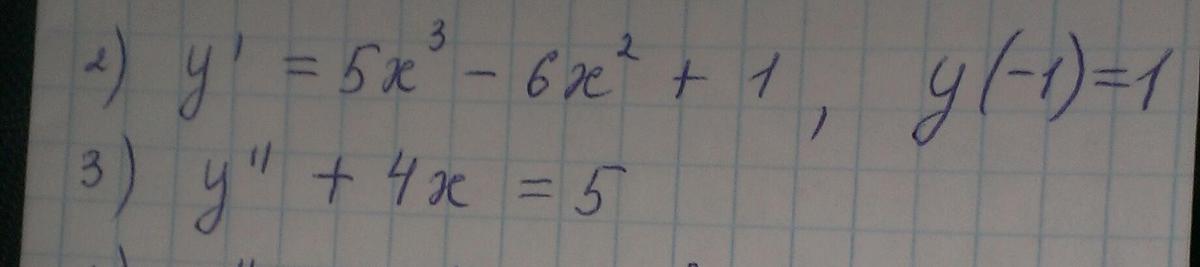 2) y' = 5x³ - 6x² + 1, y(-1)=1
3) y'' + 4x = 5